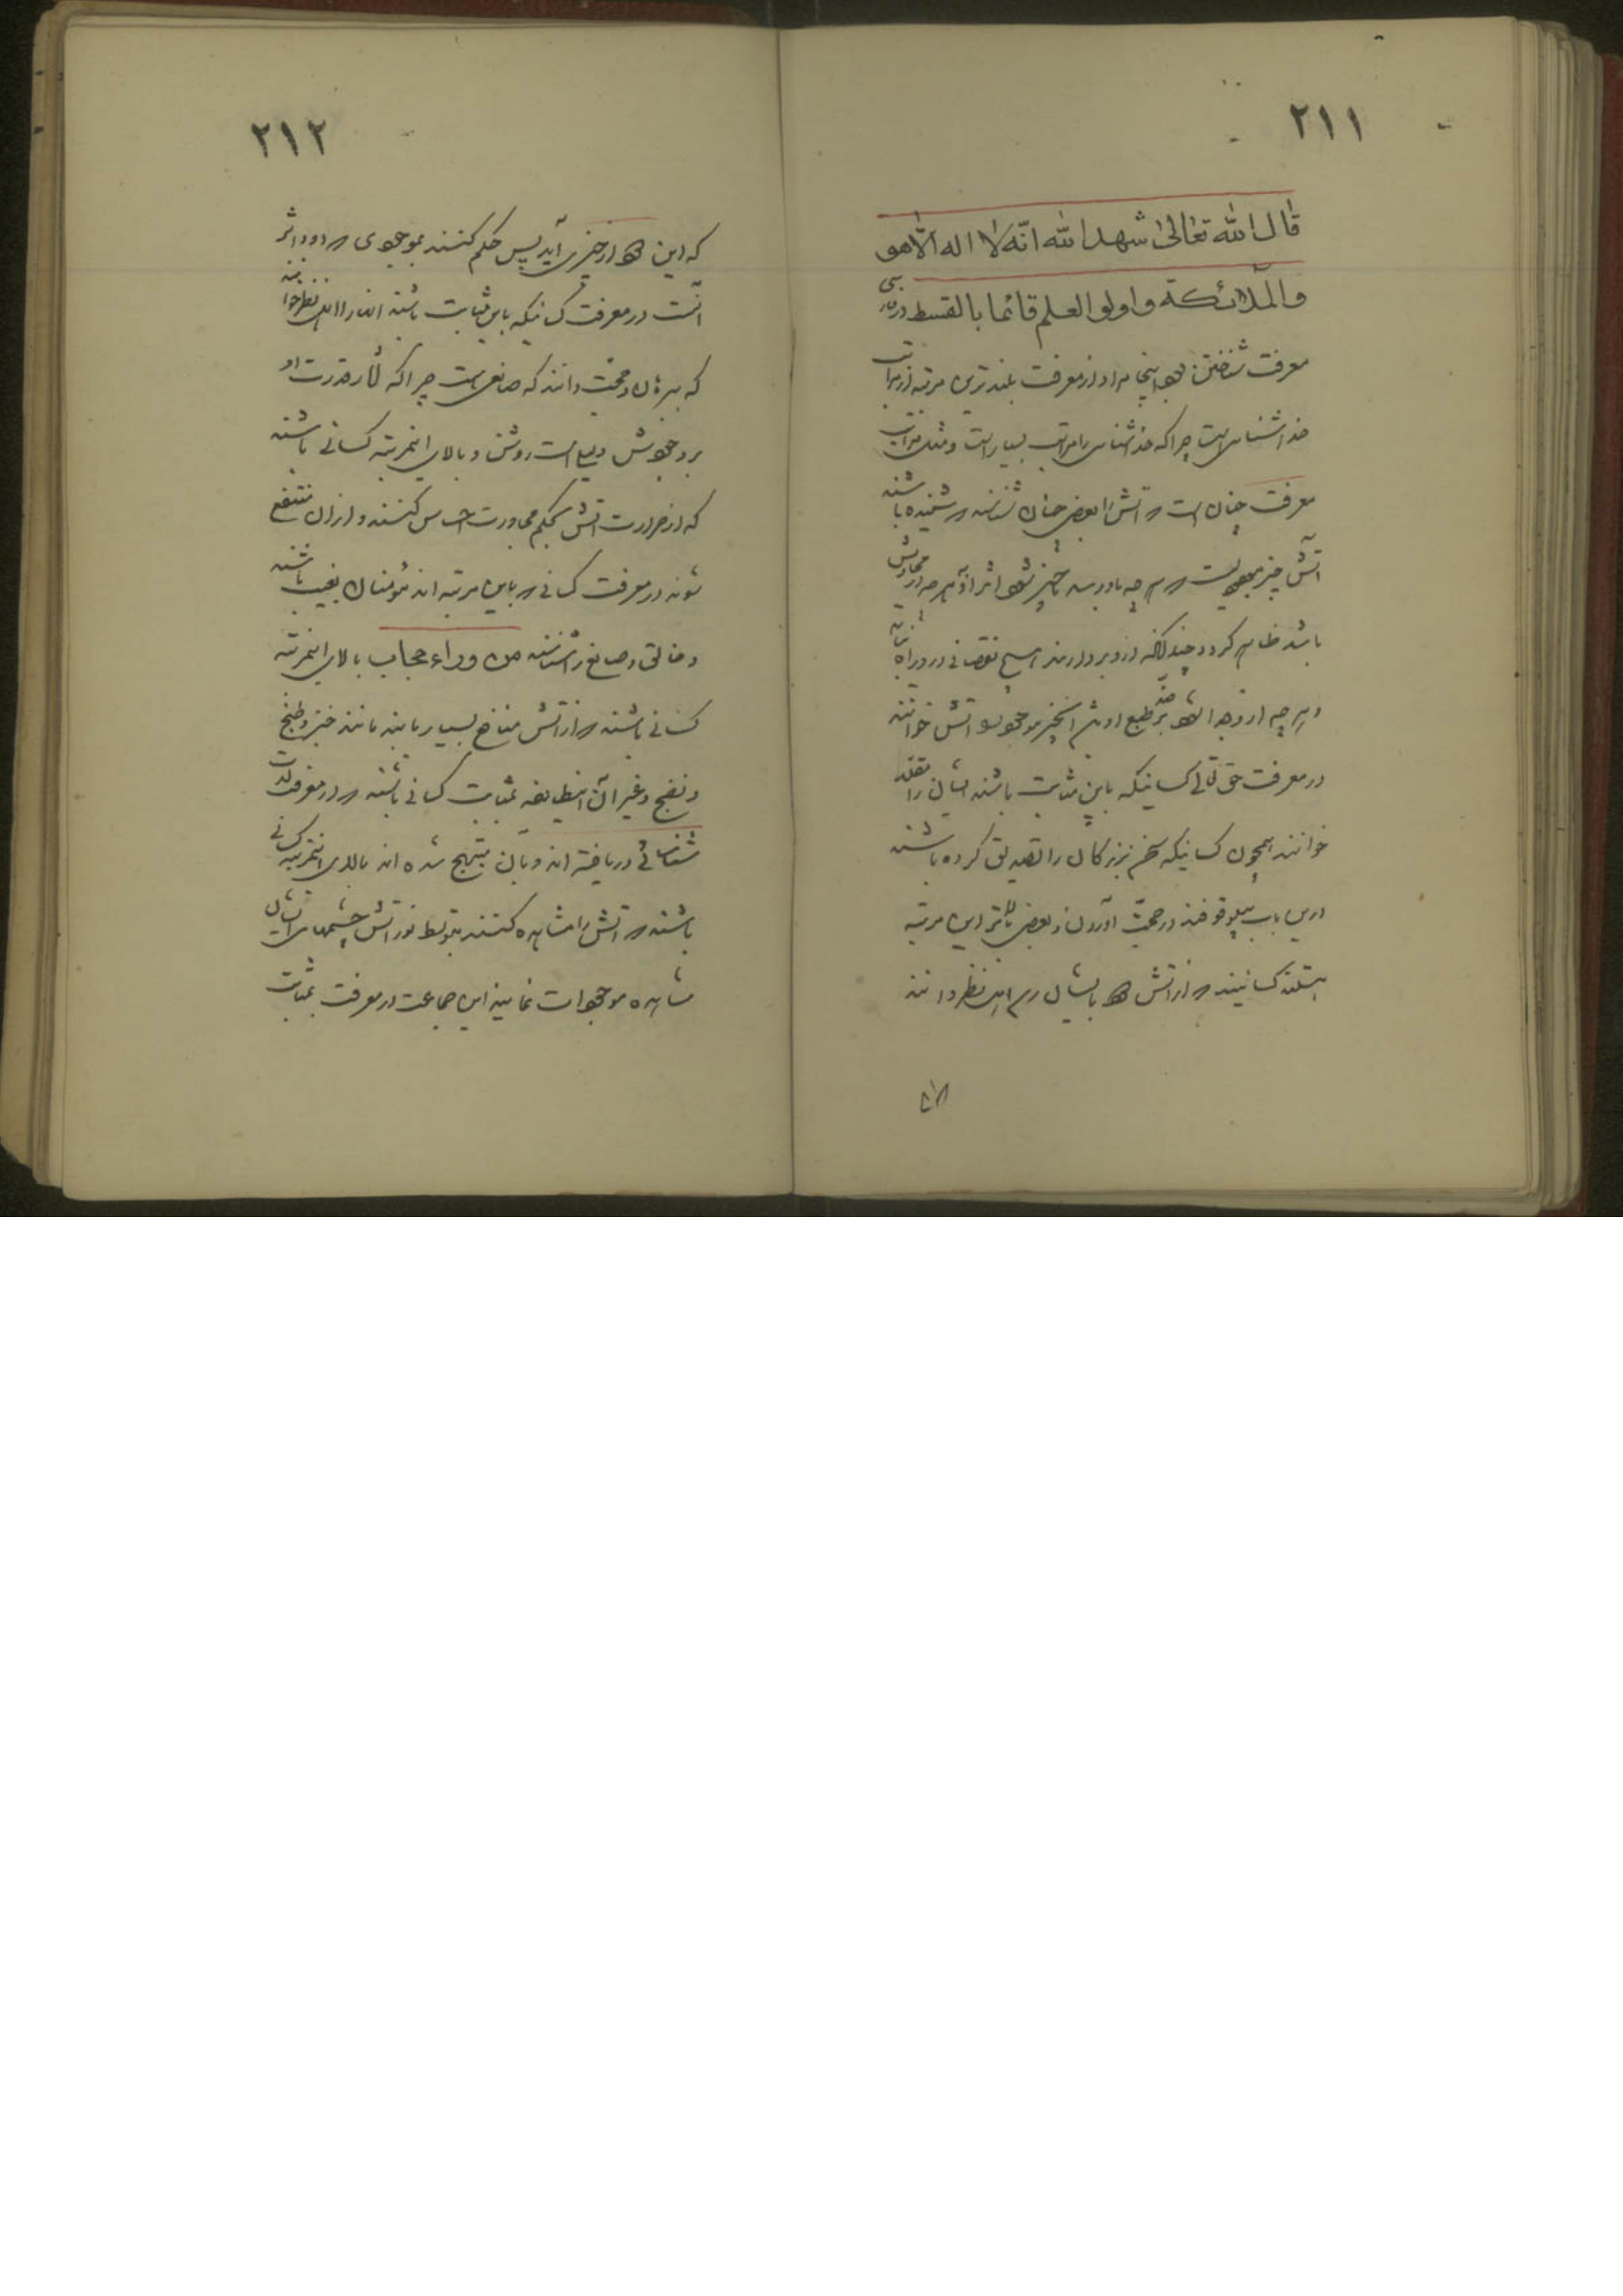 ٢١١
قال الله تعالى شهد الله انّه لا اله الّا هو
والملائكة واولوا العلم قائما بالقسط در پارسی
معرفت شناختن بود اینجا مراد از معرفت بلندترین مرتبه از مراتب
خداشناسی است چراکه خداشناسی را مراتب بسیار است و مثل مراتب
معرفت چنان است که آتش را بعضی چنان شناسند که شنیده باشند
آتش چیز موجودیست که هر چه باو رسد ناچیز شود و اثر او در هر چه در محاذیش
باشد ظاهر گردد و چندانکه از و بردارند هیچ نقصانی در و راه نیابد
و هر چه از و جدا شود بر ضد طبع او باشد انچیز موجود را آتش خوانند
در معرفت حق تعالی کسانیکه باین مثابت باشند ایشان را مقلد
خوانند همچون کسانیکه سخن بزرگان را تصدیق کرده باشند
درین باب بیوقوفند در حجت آوردن و بعضی بالاتر ازین مرتبه
هستند کسانیند که از آتش دود بایشان رسد اهل نظر دانند
٢١٢
که این دود از چیزی آید پس حکم کنند بموجودی که دود اثر
آنست در معرفت کسانیکه باین مثابت باشند ایشان را اهل نظر خوانند
که ببرهان و حجت دانند که صانعی هست چراکه آثار قدرت او
بر وجودش دلیل است روشن و بالای اینمرتبه کسانی باشند
که از حرارت آتش بحکم مجاورت احساس کنند و از آن منتفع
شوند در معرفت کسانی که باین مرتبه اند مؤمنان بغیب باشند
و خالق و صانع را شناسند من وراء حجاب بالای اینمرتبه
کسانی باشند که از آتش منافع بسیار یابند مانند خبز و طبخ
و نضج و غیر آن اینطایفه بمثابت کسانی باشند که در معرفت لذت
شناسائی دریافته اند و بآن مبتهج شده اند بالای اینمرتبه کسانی
باشند که آتش را مشاهده کنند بتوسط نور آتش چشمهای ایشان
مشاهده موجودات نماید این جماعت در معرفت بمثابت